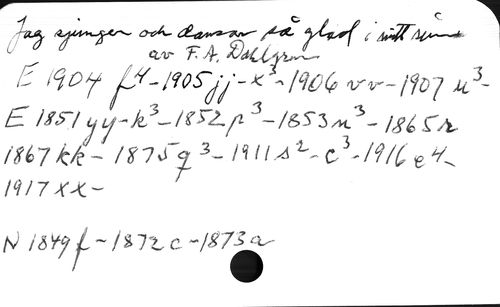 Jag sjunger och dansar så glad i mitt sinn
av F. A. Dahlgren
E 1904 f4 - 1905 jj - x3 - 1906 vv - 1907 u3 -
E 1851 yy - k3 - 1852 p3 - 1853 n3 - 1865 r
1867 kk - 1875 q3 - 1911 s2 - c3 - 1916 e4 -
1917 xx -
N 1849 f - 1872 c - 1873 a